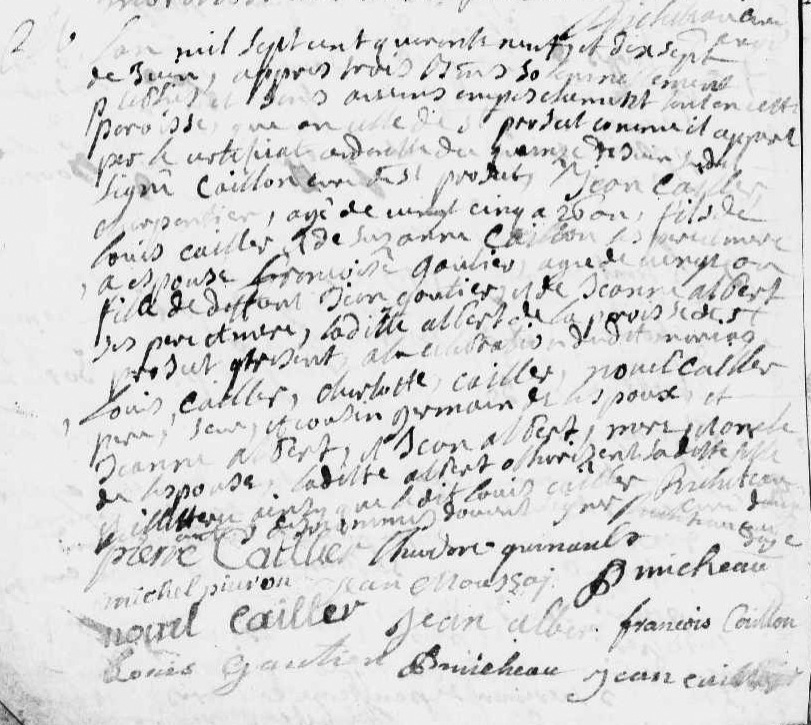 Lan mil sept cent quarente neuf, et dix sept
de Juin, appres trois bans solennellement
publiés et sans aucuns empeschement tant en cette
paroisse, que en celle de St projet comme il appert
par le certificat du quinze de Juin
signé Caillon curé de St projet, Jean Cailler
charpentier, agé de vingt cinq a 26 an, fils de
louis cailler, et de suzanne Caillon ses pere et mere
a espousé françoise Gautier, agee de vingt an
fille de deffunt Jean gautier, et de Jeanne albert
ses pere et mere, laditte albert de la paroisse de St
projet presents a la celebration dudit mariage
Louis Cailler, charlotte, cailler, nouel Cailler
pere, seur, et cousin germain de lespoux, et
Jeanne albert, et Jean albert, mere, et oncle
de lespouse, laditte albert othorizent laditte fille
que ledit louis cailler
pierre Cailler
michel pieron jean Moussaj B micheau
nouel Cailler jean albert francois Caillon
Louis Gautier B micheau jean cailler